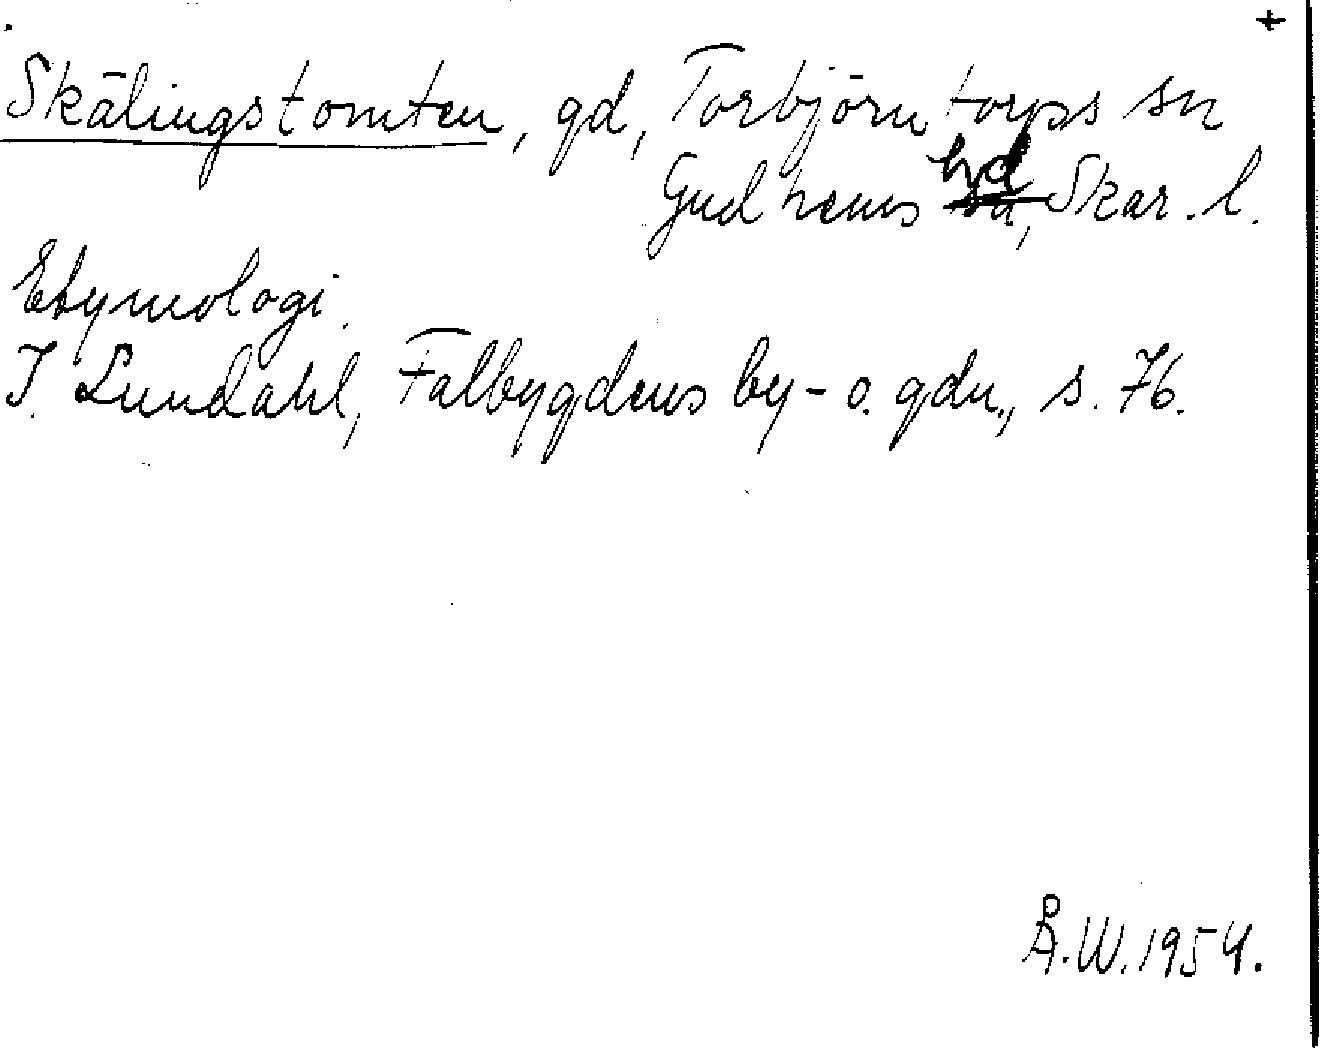 +
Skälingstomten, gd, Torbjörntorps sn
Gudhems hd, Skar. l.
Etymologi.
I. Lundahl, Falbygdens by- o. gdn., s. 76.
Å.W. 1954.